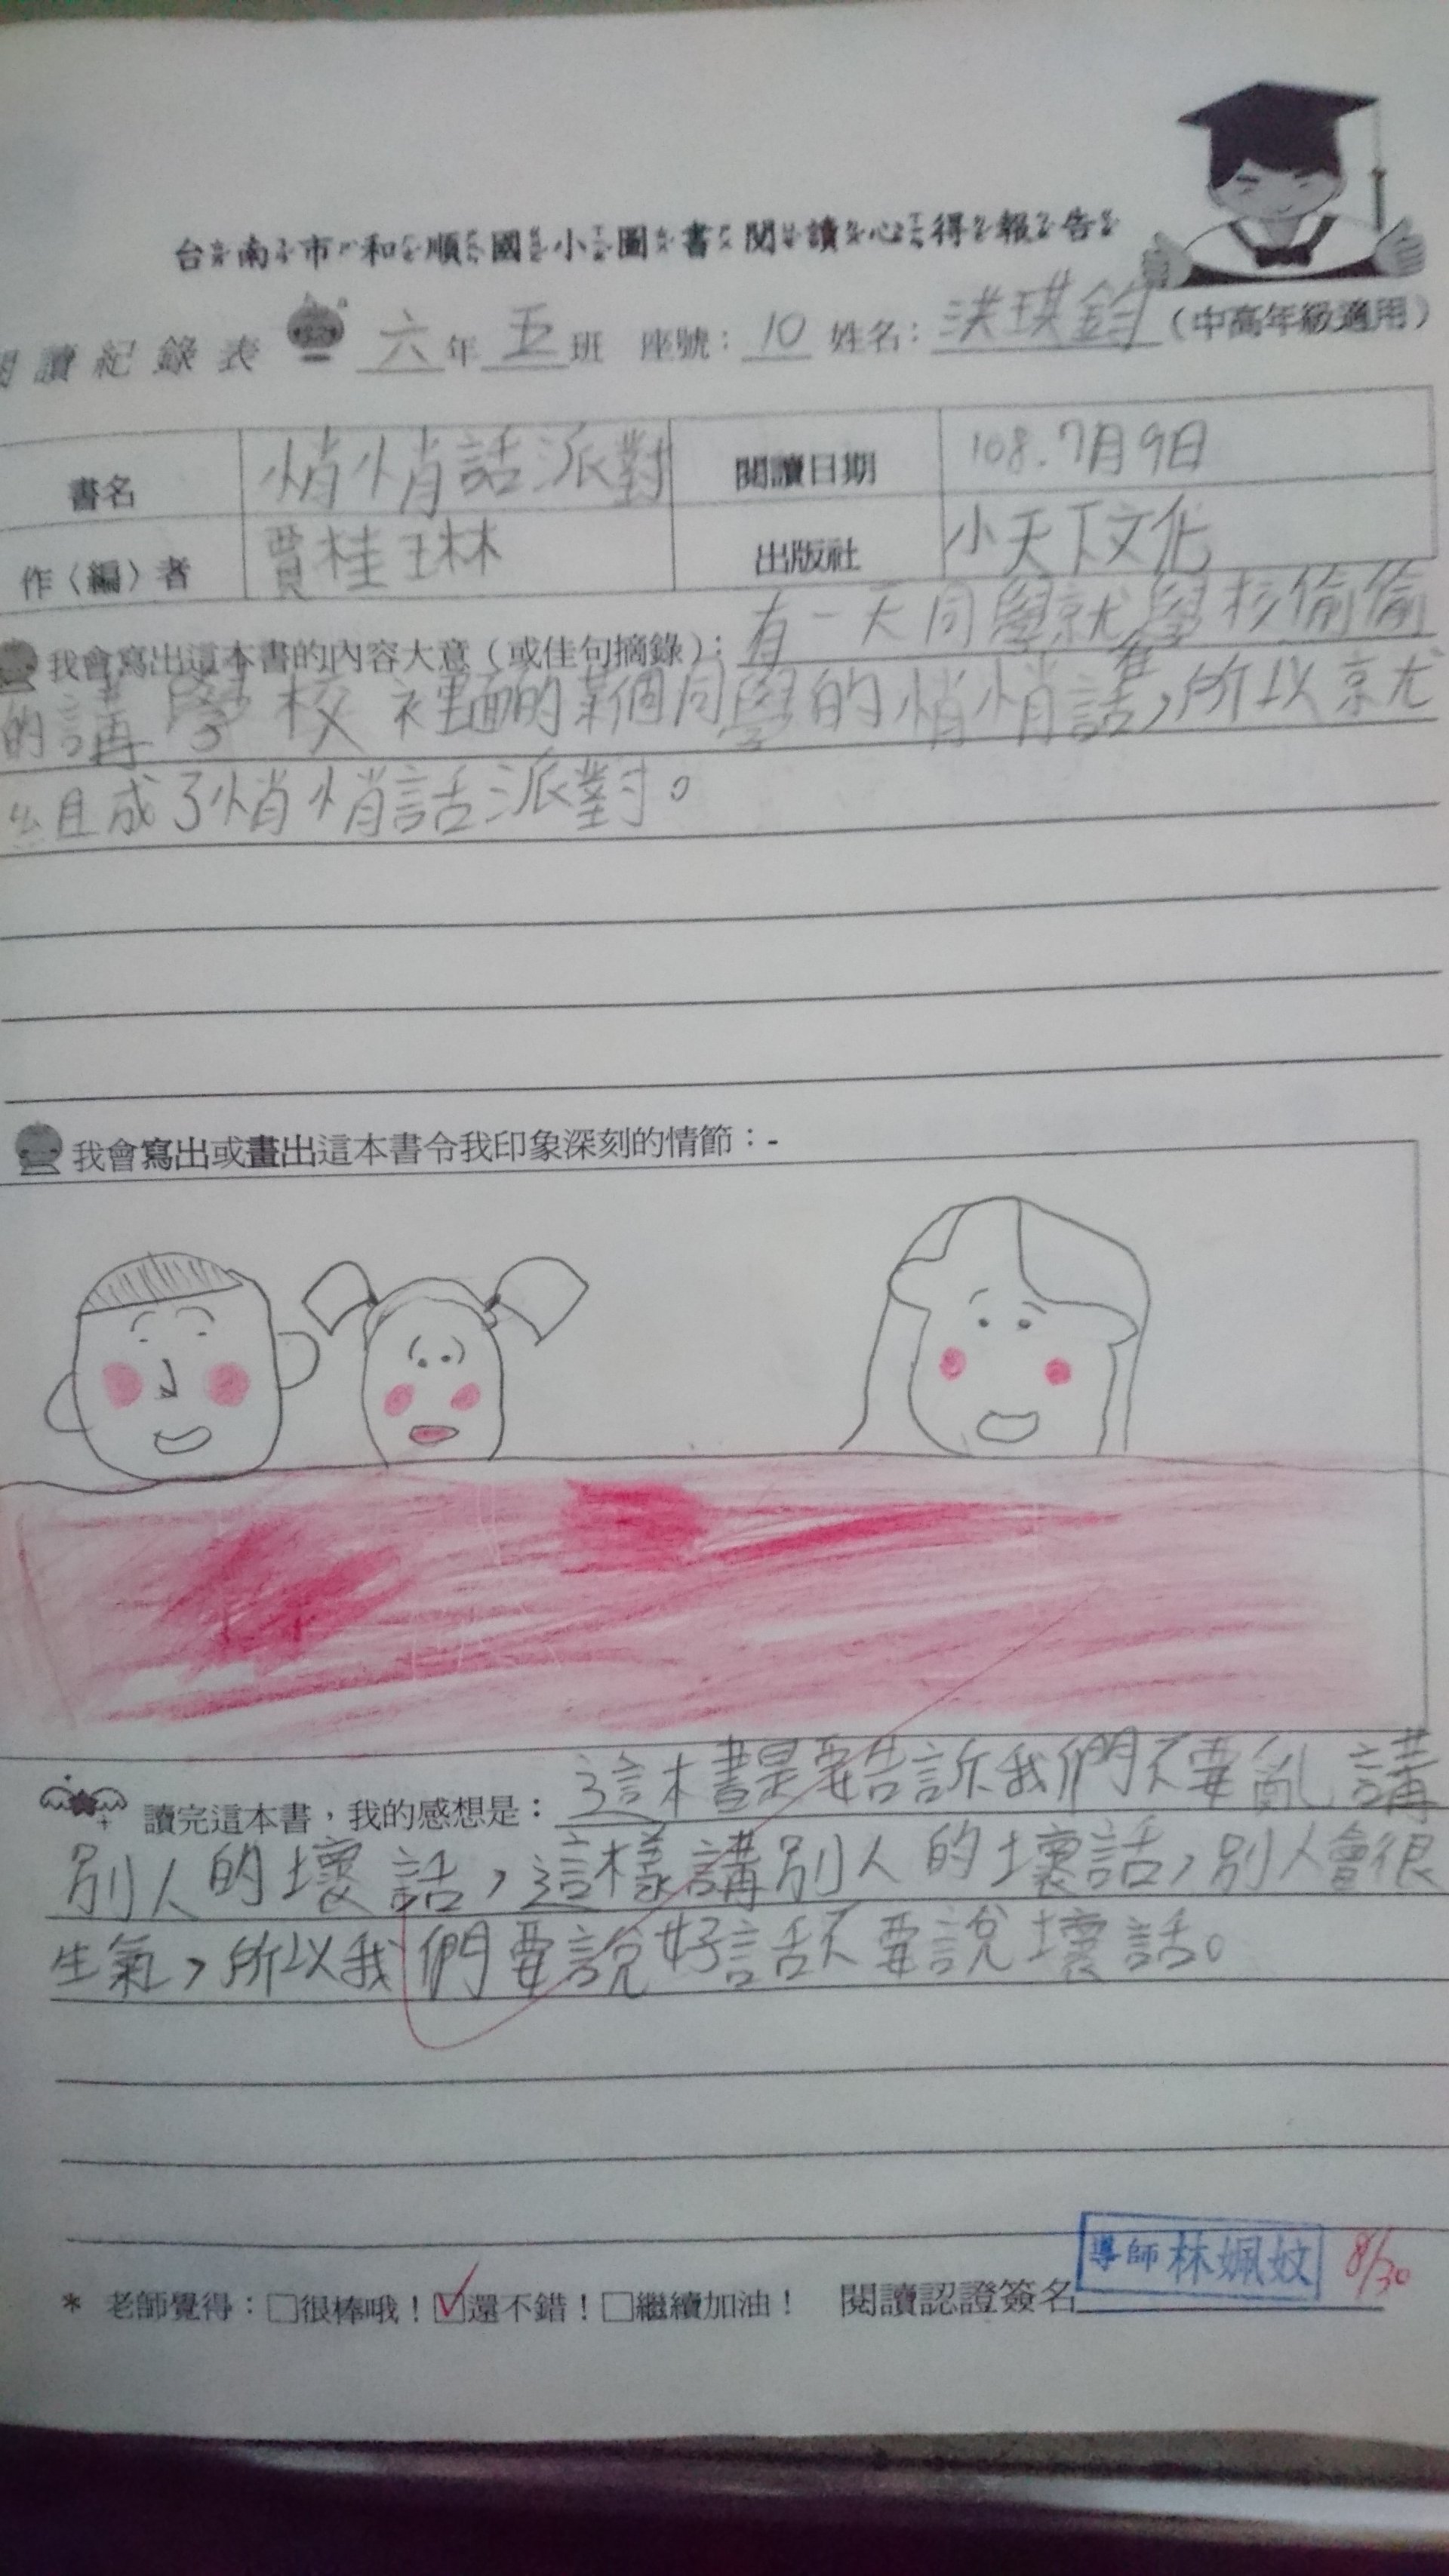 台南市和順國小圖書閱讀心得報告
閱讀紀錄表 六年五班 座號：10 姓名：洪琪鈞（中高年級適用）
書名 悄悄話派對 閱讀日期 108.7月9日
作〈編〉者 賈桂琳 出版社 小天下文化
我會寫出這本書的內容大意（或佳句摘錄）：有一天同學就學校偷偷
的講學校裡面的某個同學的悄悄話，所以就
組成了悄悄話派對。
我會寫出或畫出這本書令我印象深刻的情節：-
讀完這本書，我的感想是：這本書是要告訴我們不要亂講
別人的壞話，這樣講別人的壞話，別人會很
生氣，所以我們要說好話不要說壞話。
* 老師覺得：□很棒哦！☑還不錯！□繼續加油！ 閱讀認證簽名 導師林姵妏 8/30